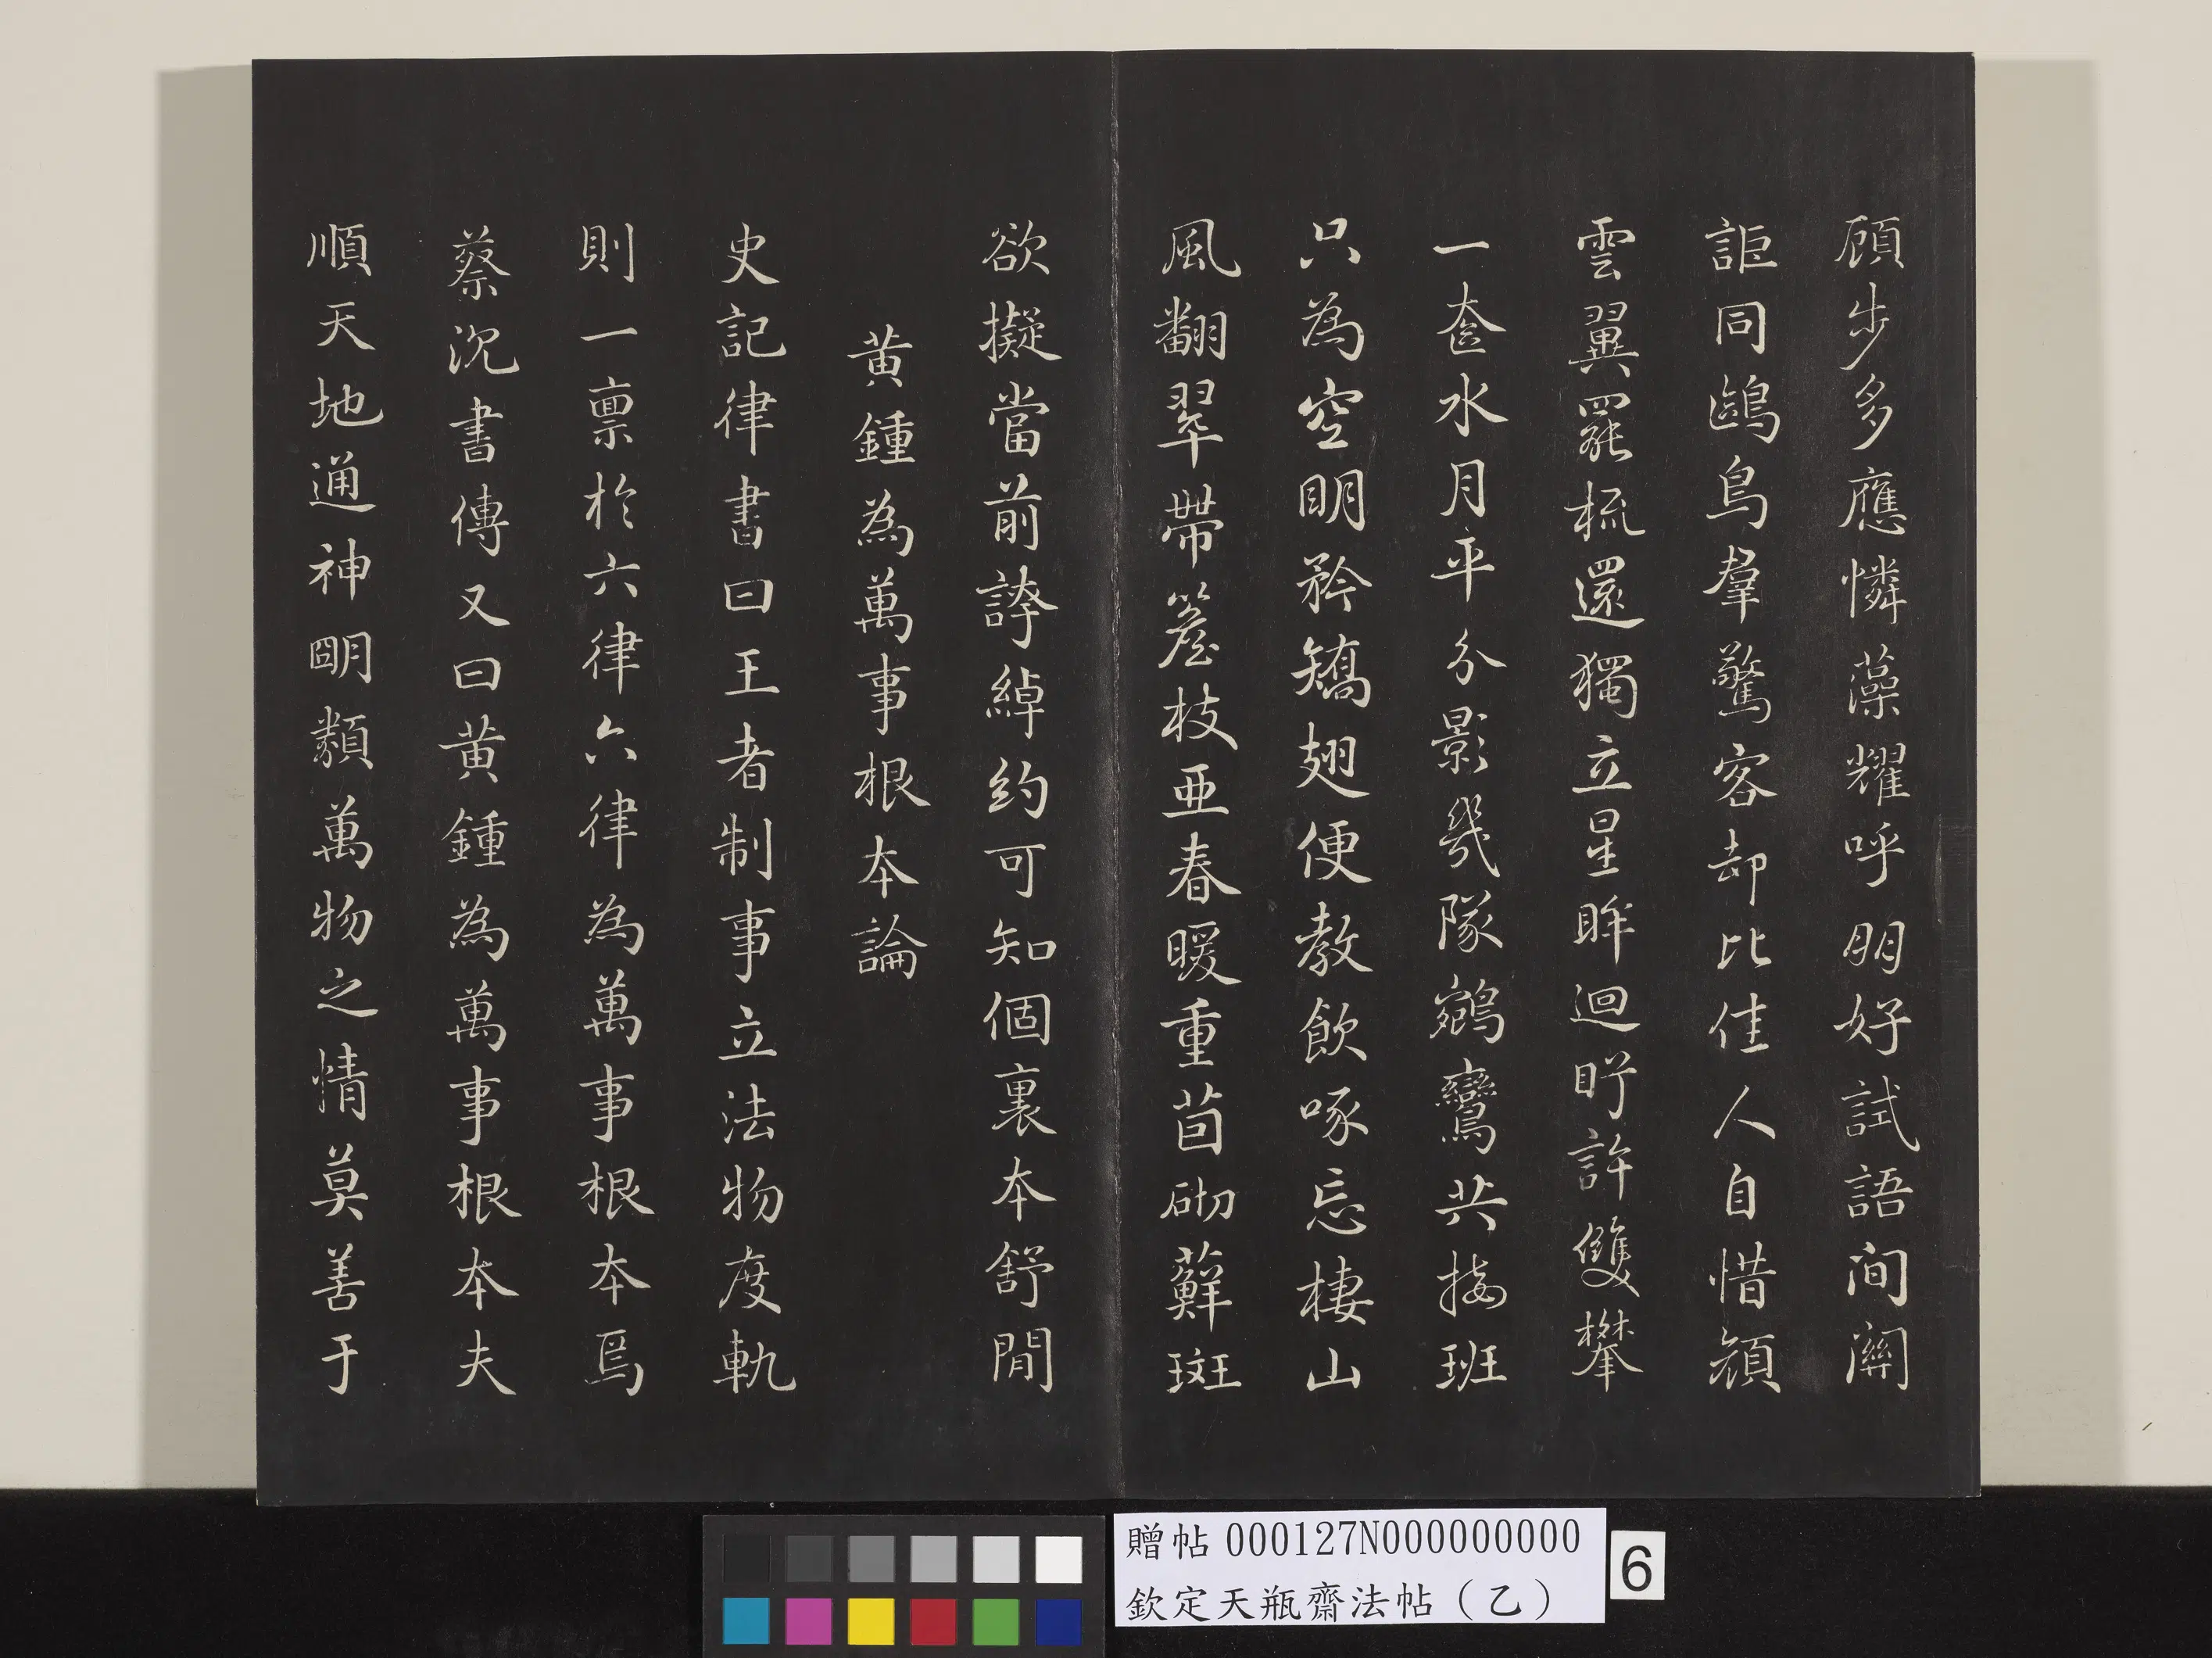 顧步多應憐藻耀呼朋好試語間關
詎同鷗鳥羣驚客却比佳人自惜顏
雲翼罷梳還獨立星眸迴盻許雙攀
一奩水月平分影幾隊鵷鸞共接班
只為空明矜矯翅便教飲啄忘棲山
風翻翠帶簷枝亜春暖重茵砌蘚斑
欲擬當前誇綽約可知個裏本舒閒
黃鍾為萬事根本論
史記律書曰王者制事立法物度軌
則一禀於六律六律為萬事根本焉
蔡沉書傳又曰黃鍾為萬事根本夫
順天地通神明類萬物之情莫善于
贈帖 000127N000000000
欽定天瓶齋法帖（乙）
6